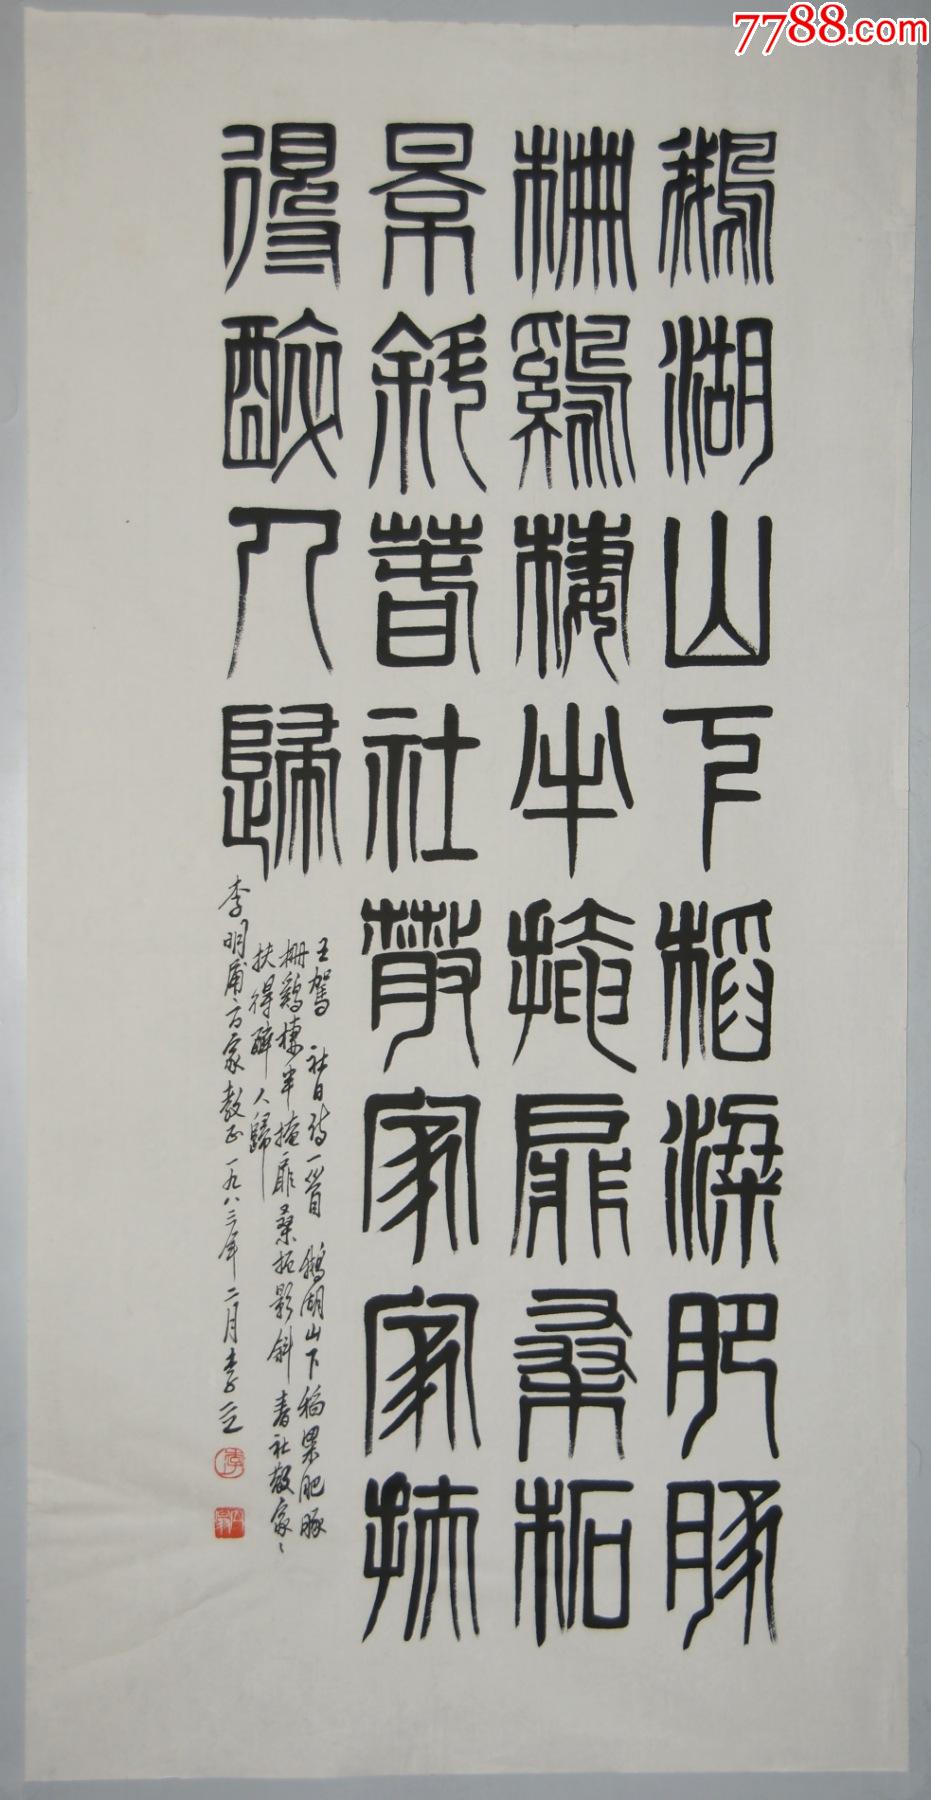 7788.com
鵝湖山下稻粱肥豚
柵鷄棲半掩扉桑柘
景斜春社散家家扶
得醉人歸
王駕 社日詩一首 鵝湖山下稻粱肥豚
柵鷄棲半掩扉桑柘影斜春社散家〻
扶得醉人歸
李明甫方家教正一九八三年二月李立